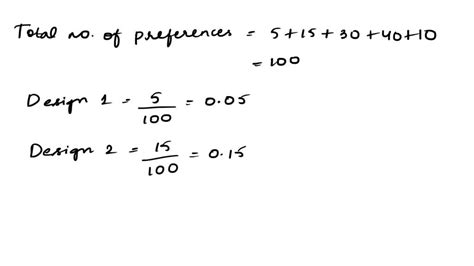 Total no. of preferences = 5+15+30+40+10
= 100
Design 1 = 5/100 = 0.05
Design 2 = 15/100 = 0.15